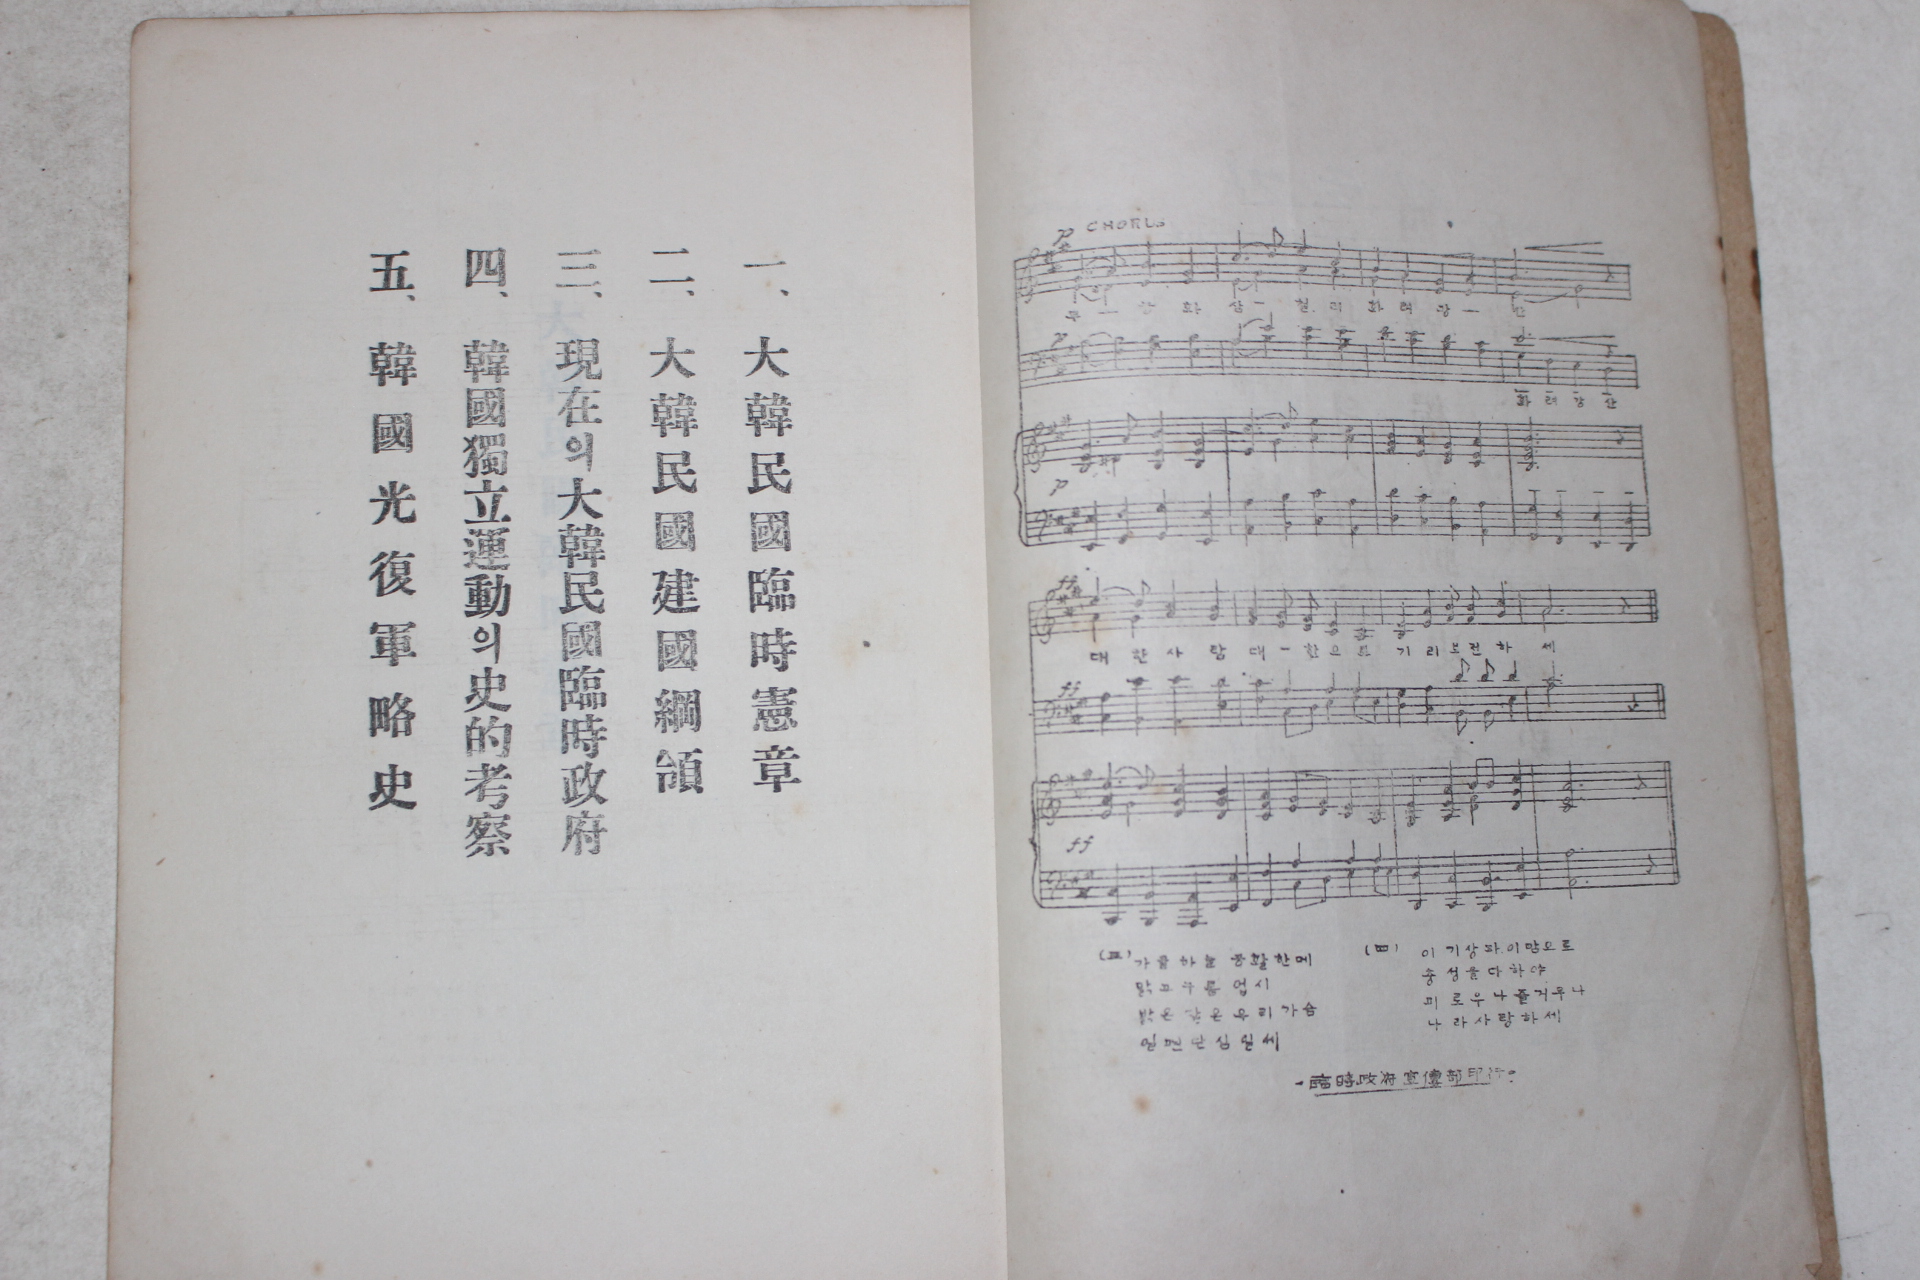 p CHORUS
무 - 궁 화 삼 - 천 리 화 려 강 - 산
p
화 려 강 산
p
ff
대 한 사 람 대 - 한 으 로 기 리 보 전 하 세
ff
ff
(三) 가을하늘 공활한데
맑고구름 업시
밝은 달은 우리가슴
일편단심일세
(四) 이 기상과 이맘으로
충성을다하야
괴로우나 즐거우나
나라사랑하세
臨時政府宣傳部印行
一、大韓民國臨時憲章
二、大韓民國建國綱領
三、現在의大韓民國臨時政府
四、韓國獨立運動의史的考察
五、韓國光復軍略史